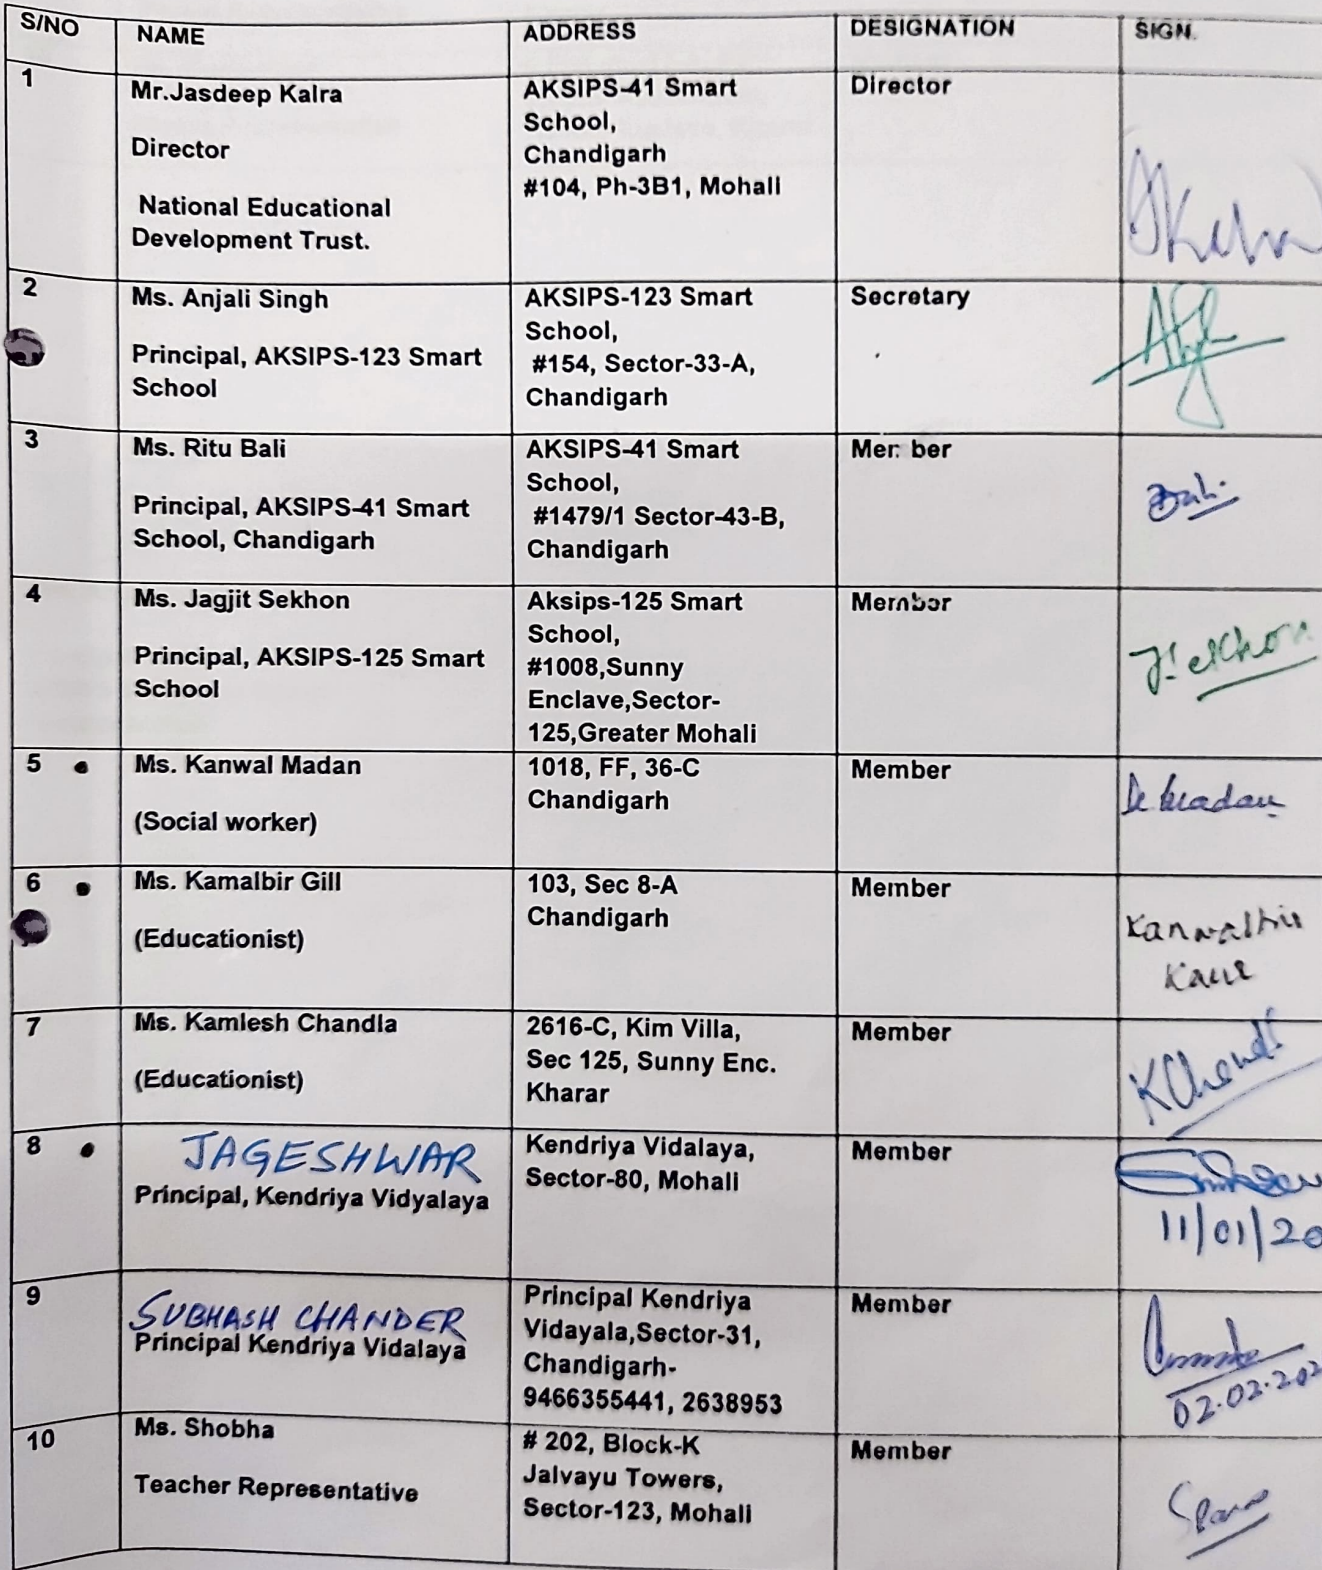 S/NO NAME ADDRESS DESIGNATION SIGN.
1 Mr.Jasdeep Kalra
Director
National Educational
Development Trust.
AKSIPS-41 Smart
School,
Chandigarh
#104, Ph-3B1, Mohali
Director
2 Ms. Anjali Singh
Principal, AKSIPS-123 Smart
School
AKSIPS-123 Smart
School,
#154, Sector-33-A,
Chandigarh
Secretary
3 Ms. Ritu Bali
Principal, AKSIPS-41 Smart
School, Chandigarh
AKSIPS-41 Smart
School,
#1479/1 Sector-43-B,
Chandigarh
Member
Bali.
4 Ms. Jagjit Sekhon
Principal, AKSIPS-125 Smart
School
Aksips-125 Smart
School,
#1008,Sunny
Enclave,Sector-
125,Greater Mohali
Member
JSekhon
5 Ms. Kanwal Madan
(Social worker)
1018, FF, 36-C
Chandigarh
Member
Madan
6 Ms. Kamalbir Gill
(Educationist)
103, Sec 8-A
Chandigarh
Member
Kanwalbir
Kaur
7 Ms. Kamlesh Chandla
(Educationist)
2616-C, Kim Villa,
Sec 125, Sunny Enc.
Kharar
Member
8 JAGESHWAR
Principal, Kendriya Vidyalaya
Kendriya Vidalaya,
Sector-80, Mohali
Member
11/01/20
9 SUBHASH CHANDER
Principal Kendriya Vidalaya
Principal Kendriya
Vidayala,Sector-31,
Chandigarh-
9466355441, 2638953
Member
02.02.202
10 Ms. Shobha
Teacher Representative
# 202, Block-K
Jalvayu Towers,
Sector-123, Mohali
Member